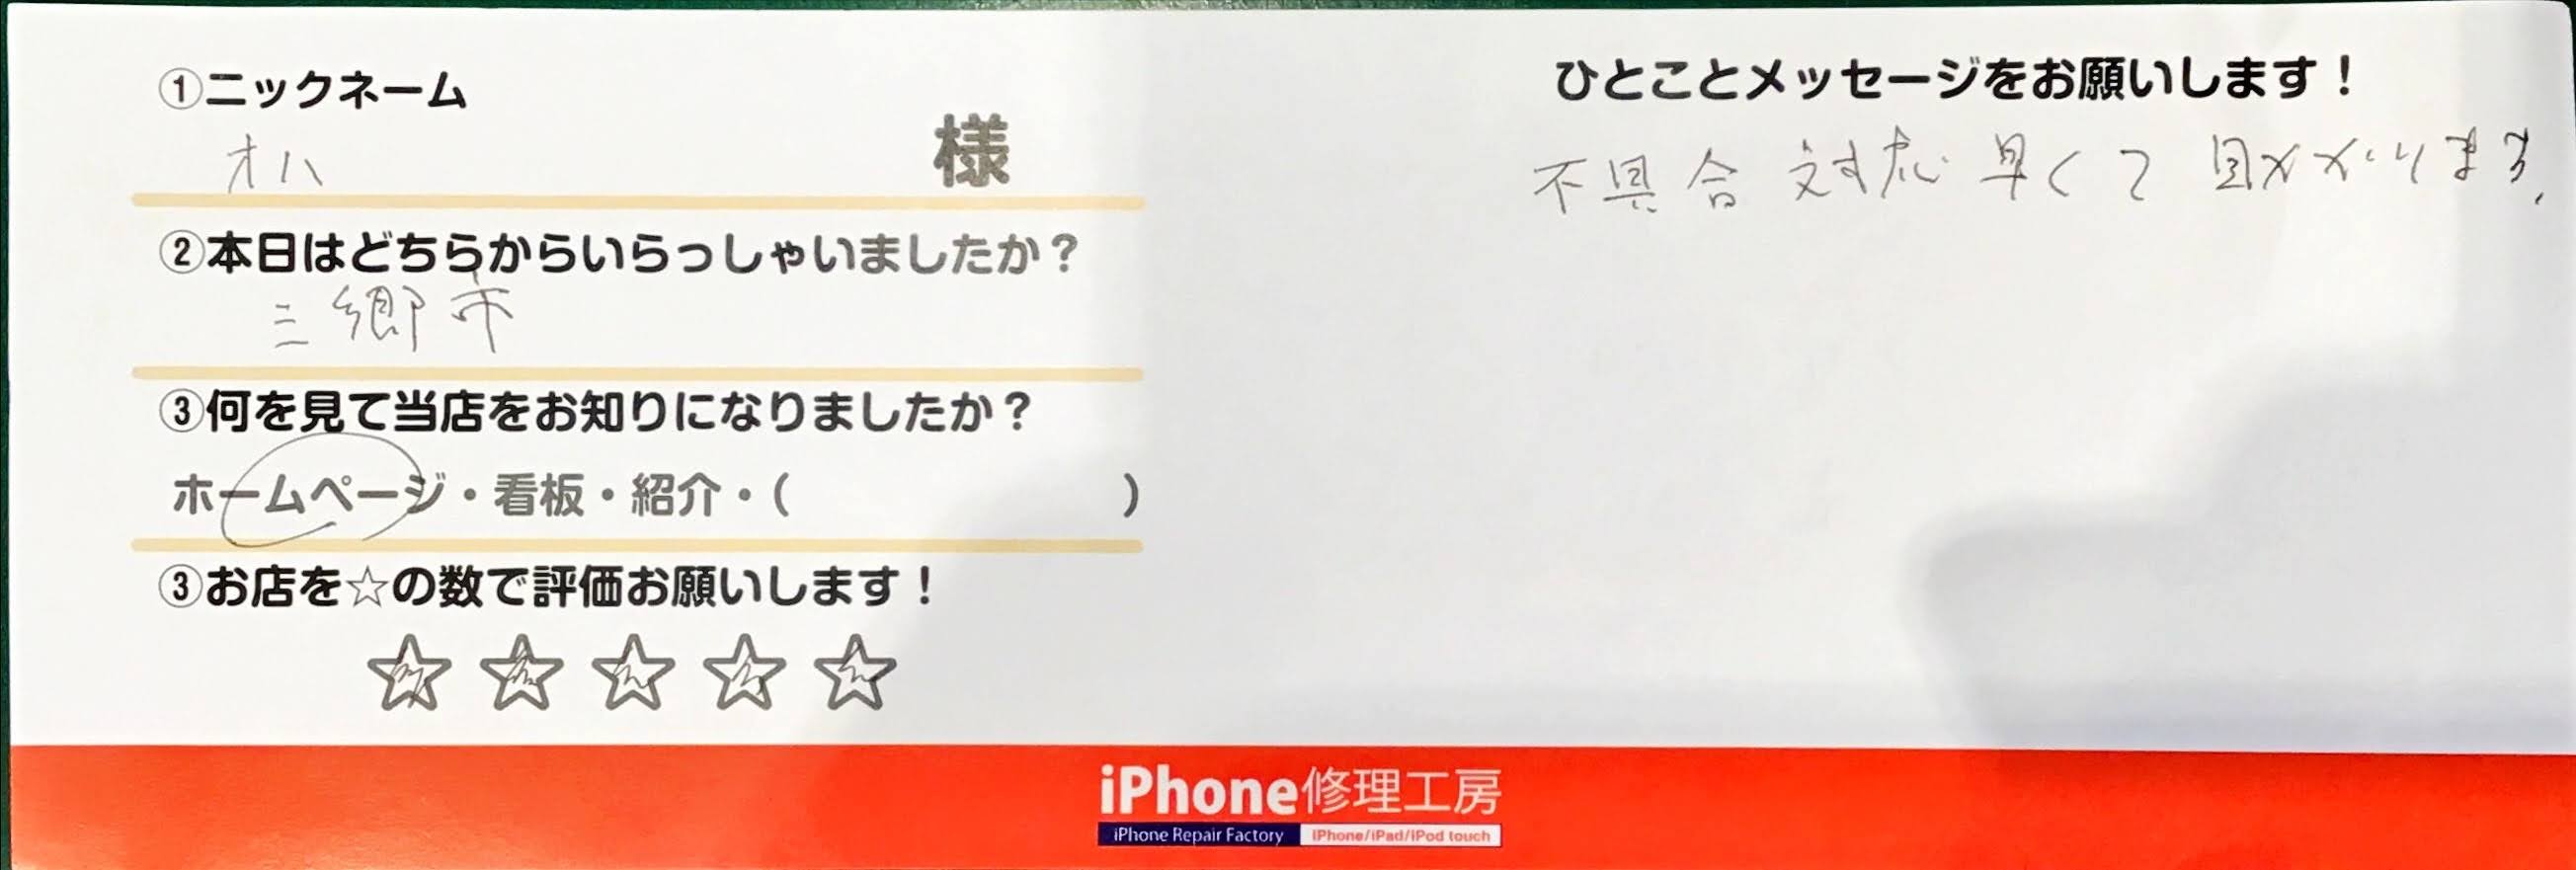 ①ニックネーム
オハ 様
②本日はどちらからいらっしゃいましたか？
三郷市
③何を見て当店をお知りになりましたか？
ホームページ・看板・紹介・(　　　)
③お店を☆の数で評価お願いします！
☆☆☆☆☆
ひとことメッセージをお願いします！
不具合対応早くて助かります。
iPhone修理工房
iPhone Repair Factory iPhone/iPad/iPod touch